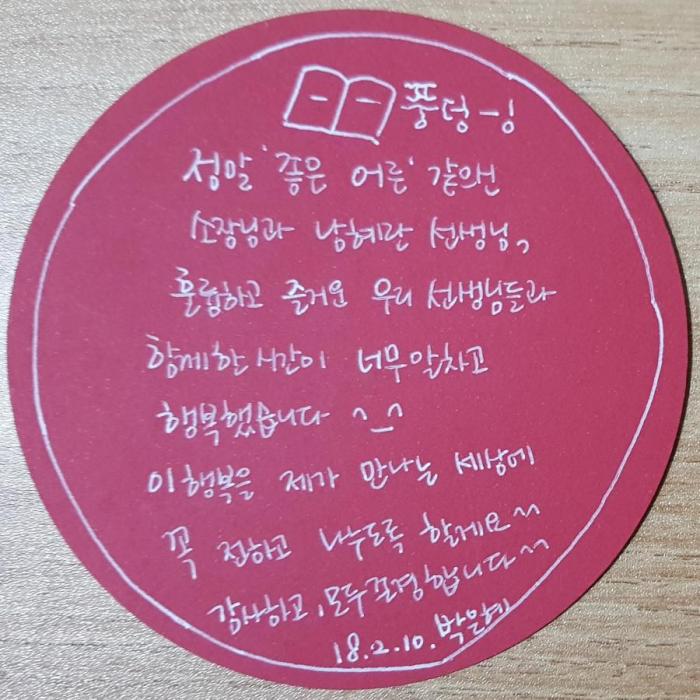 풍덩-!
정말 '좋은 어른' 같으신
소장님과 남혜란 선생님,
훌륭하고 즐거운 우리 선생님들과
함께한 시간이 너무 알차고
행복했습니다 ^_^
이 행복을 제가 만나는 세상에
꼭 전하고 나누도록 할게요~~
감사하고, 모두 존경합니다~~
18.2.10. 박은혜